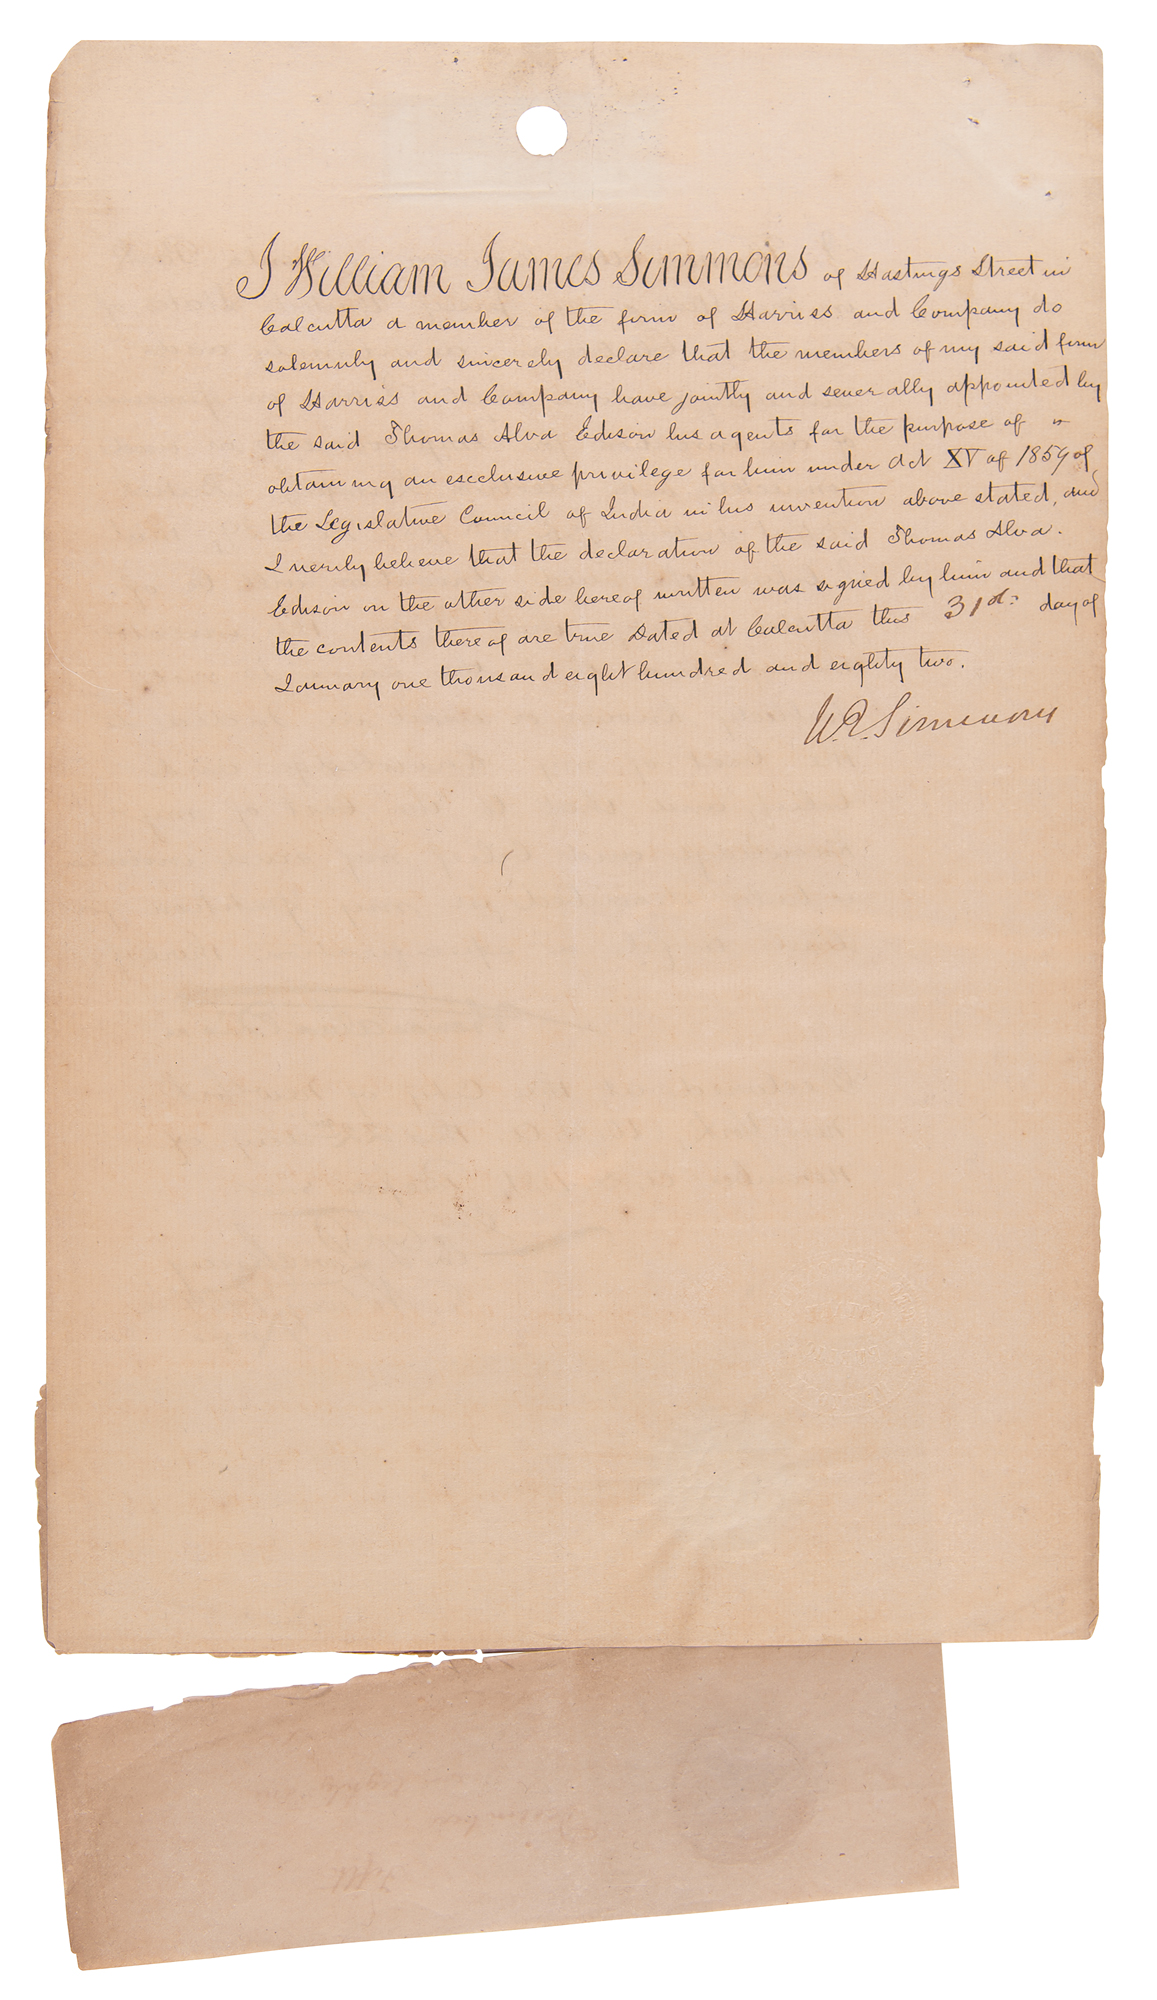 I William James Simmons of Hastings Street in
Calcutta a member of the firm of Harriss and Company do
solemnly and sincerely declare that the members of my said firm
of Harriss and Company have jointly and severally appointed by
the said Thomas Alva Edison his agents for the purpose of "
obtaining an excclusive privilege for him under Act XV of 1859 of
the Legislative Council of India in his invention above stated, and
I verily believe that the declaration of the said Thomas Alva.
Edison on the other side hereof written was signed by him and that
the contents thereof are true Dated at Calcutta this 31st day of
January one thousand eight hundred and eighty two.
W. J. Simmons